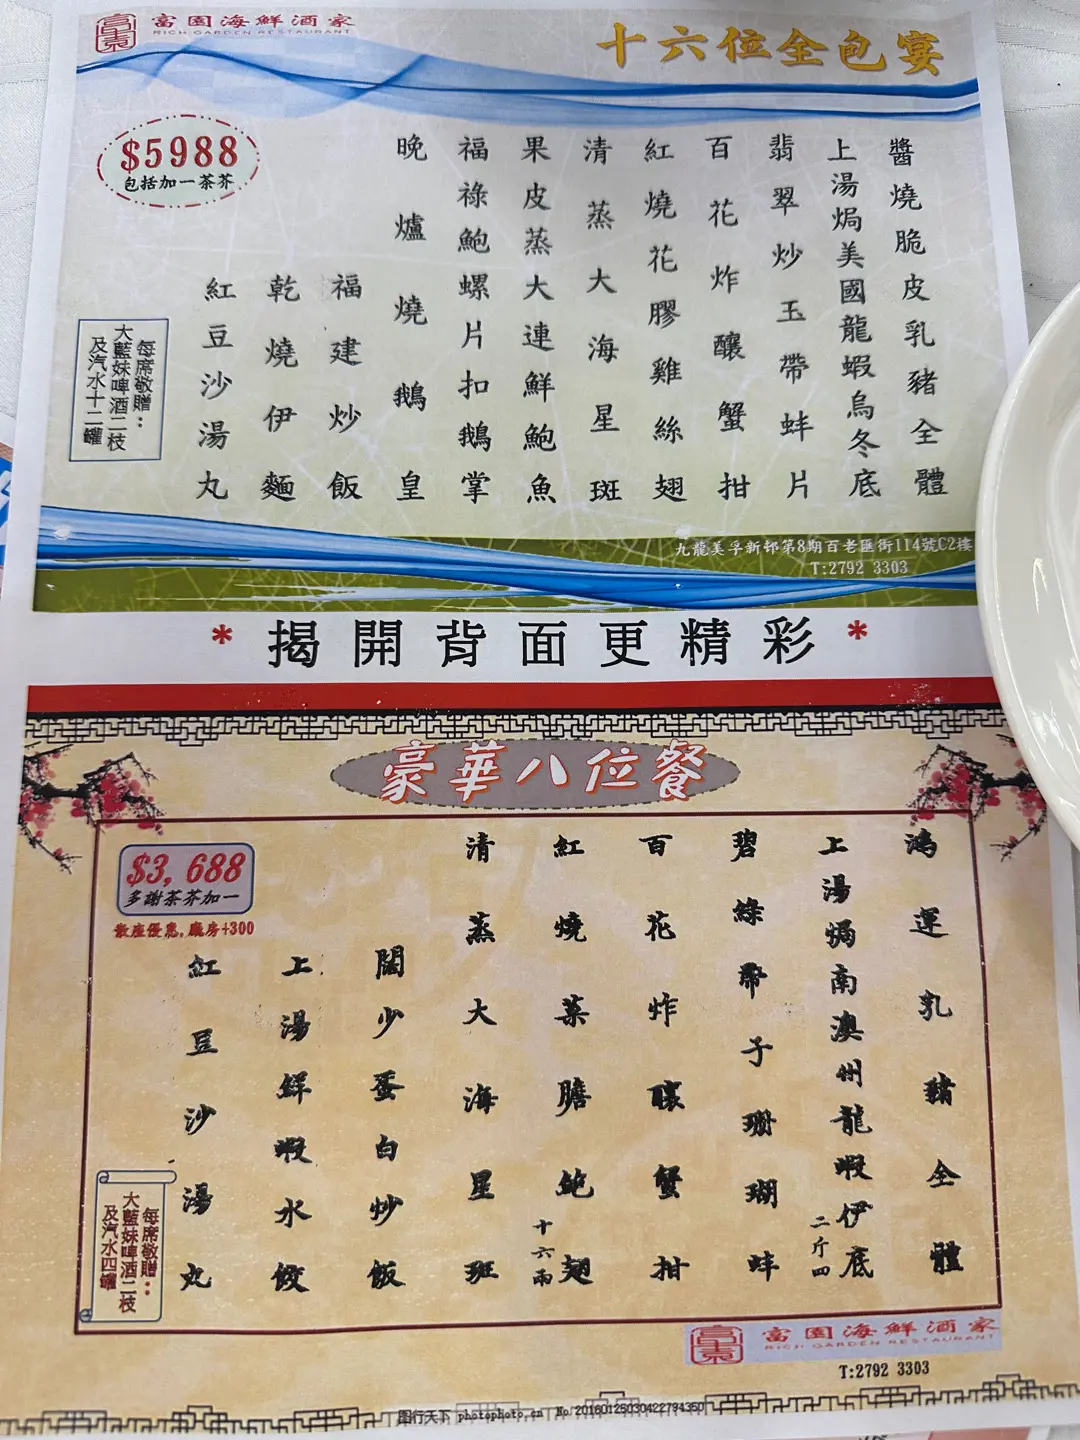 富園海鮮酒家
RICH GARDEN RESTAURANT
十六位全包宴
$5988
包括加一茶芥
醬燒脆皮乳豬全體
上湯焗美國龍蝦烏冬底
翡翠炒玉帶蚌片
百花炸釀蟹拑
紅燒花膠雞絲翅
清蒸大海星斑
果皮蒸大連鮮鮑魚
福祿鮑螺片扣鵝掌
晚爐燒鵝皇
福建炒飯
乾燒伊麵
紅豆沙湯丸
每席敬贈：
大藍妹啤酒二枝
及汽水十二罐
九龍美孚新邨第8期百老匯街114號C2樓
T:2792 3303
*揭開背面更精彩*
豪華八位餐
$3,688
多謝茶芥加一
散座優惠,廳房+300
鴻運乳豬全體
上湯焗南澳州龍蝦伊底
二斤四
碧綠帶子珊瑚蚌
百花炸釀蟹拑
紅燒菜膽鮑翅
十六兩
清蒸大海星斑
闊少蛋白炒飯
上湯鮮蝦水餃
紅豆沙湯丸
每席敬贈：
大藍妹啤酒二枝
及汽水四罐
富園海鮮酒家
RICH GARDEN RESTAURANT
T:2792 3303
图行天下 photophoto.cn No.20160125030422794350